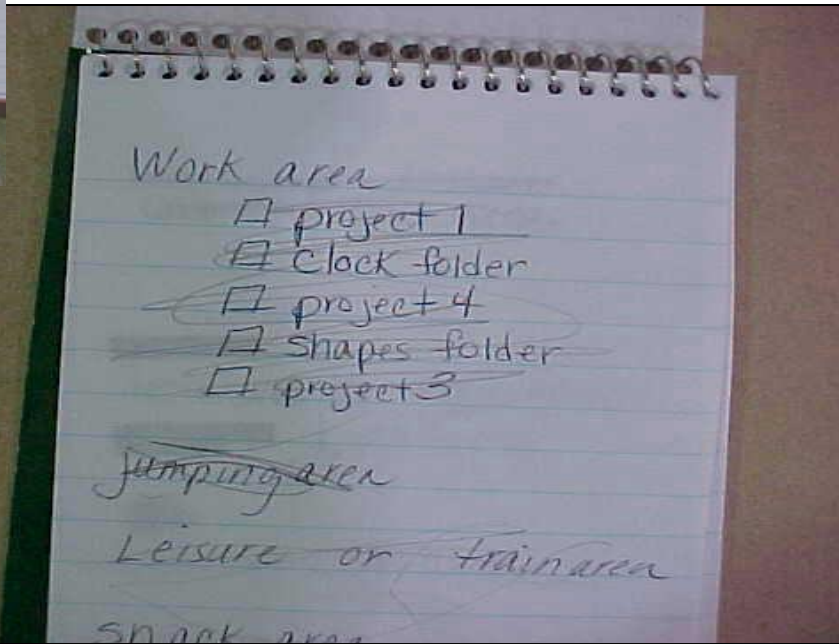 Work area
project 1
Clock folder
project 4
shapes folder
project 3
jumping area
Leisure or train area
snack area